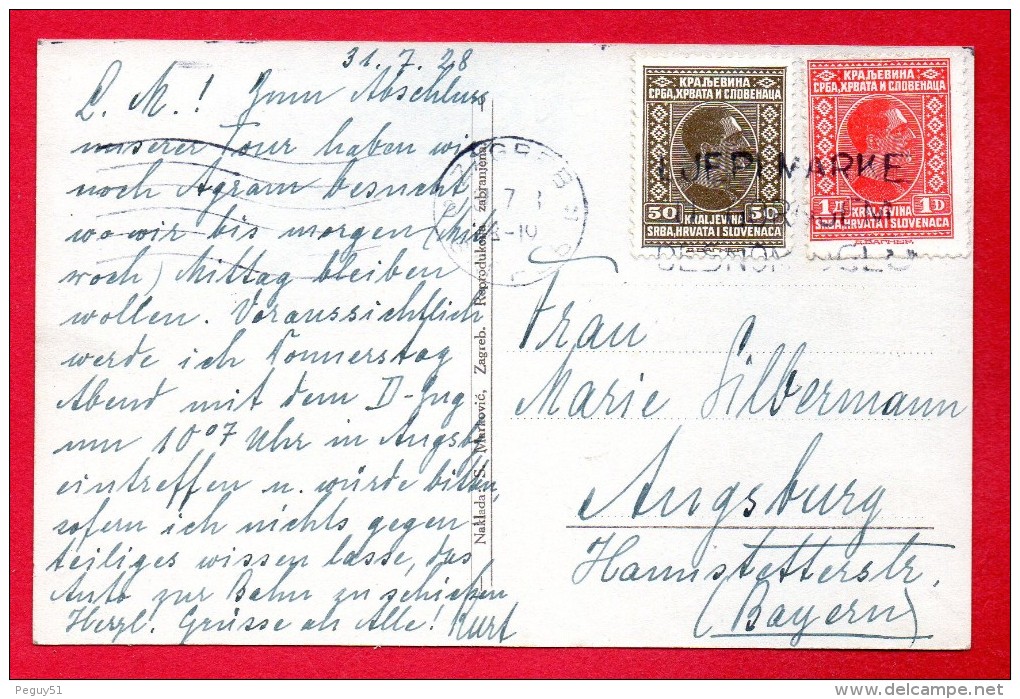 31. 7. 28
L. M.! Zum Abschluss
unserer Tour haben wir
noch Agram besucht
wo wir bis morgen (Mitt
woch) Mittag bleiben
wollen. Voraussichtlich
werde ich Donnerstag
Abend mit dem D-Zug
um 10⁰⁷ Uhr in Augsbg
eintreffen u. würde bitten,
sofern ich nichts gegen
teiliges wissen lasse, das
Auto zur Bahn zu schicken
Herzl. Grüsse als Alle! Kurt
Naklada S. Marković, Zagreb. Reprodukcija zabranjena
КРАЉЕВИНА
СРБА, ХРВАТА И СЛОВЕНАЦА
50 50
KRALJEVINA
SRBA, HRVATA I SLOVENACA
КРАЉЕВИНА
СРБА, ХРВАТА И СЛОВЕНАЦА
1Д 1D
KRALJEVINA
SRBA, HRVATA I SLOVENACA
ZAGREB
LJEPI MARKE
Frau
Marie Silbermann
Augsburg
Haunstetterstr.
(Bayern)
Peguy51
delcampe.net